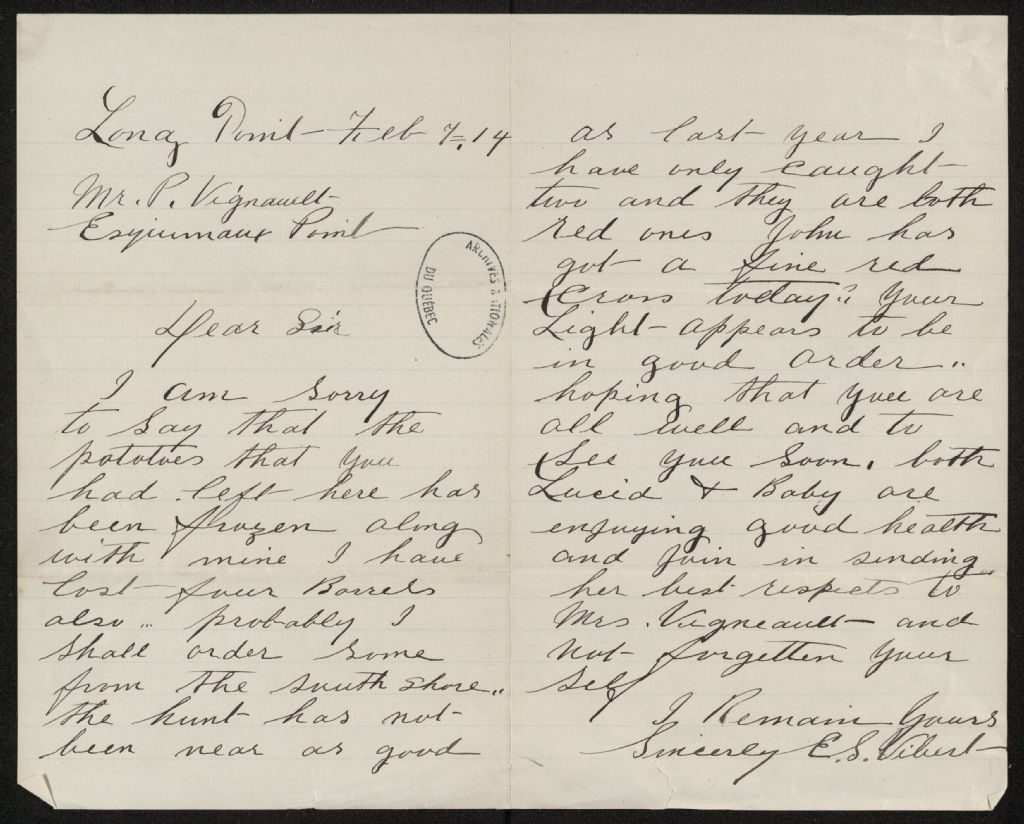 Long Point Feb 7=, 14
Mr. P. Vignault
Esquimaux Point
ARCHIVES NATIONALES
DU QUÉBEC
Dear Sir
I am sorry
to say that the
potatoes that you
had left here has
been frozen along
with mine I have
lost four Barrels
also „ probably I
shall order some
from the south shore „
the hunt has not
been near as good
as last year I
have only caught
two and they are both
red ones John has
got a fine red
Cross today „ your
Light appears to be
in good order „
hoping that you are
all well and to
See you soon. both
Lucid & Baby are
enjoying good health
and Join in sending
her best respects to
Mrs. Vigneault and
not forgetten your
self
I Remain Yours
Sincerly E. S. Vibert